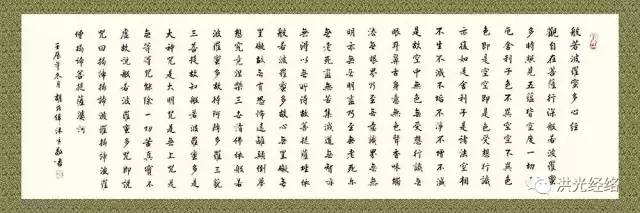 般若波羅蜜多心经
觀自在菩薩行深般若波羅蜜
多時照見五蘊皆空度一切苦
厄舍利子色不異空空不異色
色即是空空即是色受想行識
亦復如是舍利子是諸法空相
不生不滅不垢不淨不增不減
是故空中無色無受想行識無
眼耳鼻舌身意無色聲香味觸
法無眼界乃至無意識界無無
明亦無無明盡乃至無老死亦
無老死盡無苦集滅道無智亦
無得以無所得故菩提薩埵依
般若波羅蜜多故心無罣礙無
罣礙故無有恐怖遠離顛倒夢
想究竟涅槃三世諸佛依般若
波羅蜜多故得阿耨多羅三藐
三菩提故知般若波羅蜜多是
大神咒是大明咒是無上咒是
無等等咒能除一切苦真實不
虛故說般若波羅蜜多咒即說
咒曰揭諦揭諦波羅揭諦波羅
僧揭諦菩提薩婆訶
壬辰年冬月 沐手敬書
洪光经络